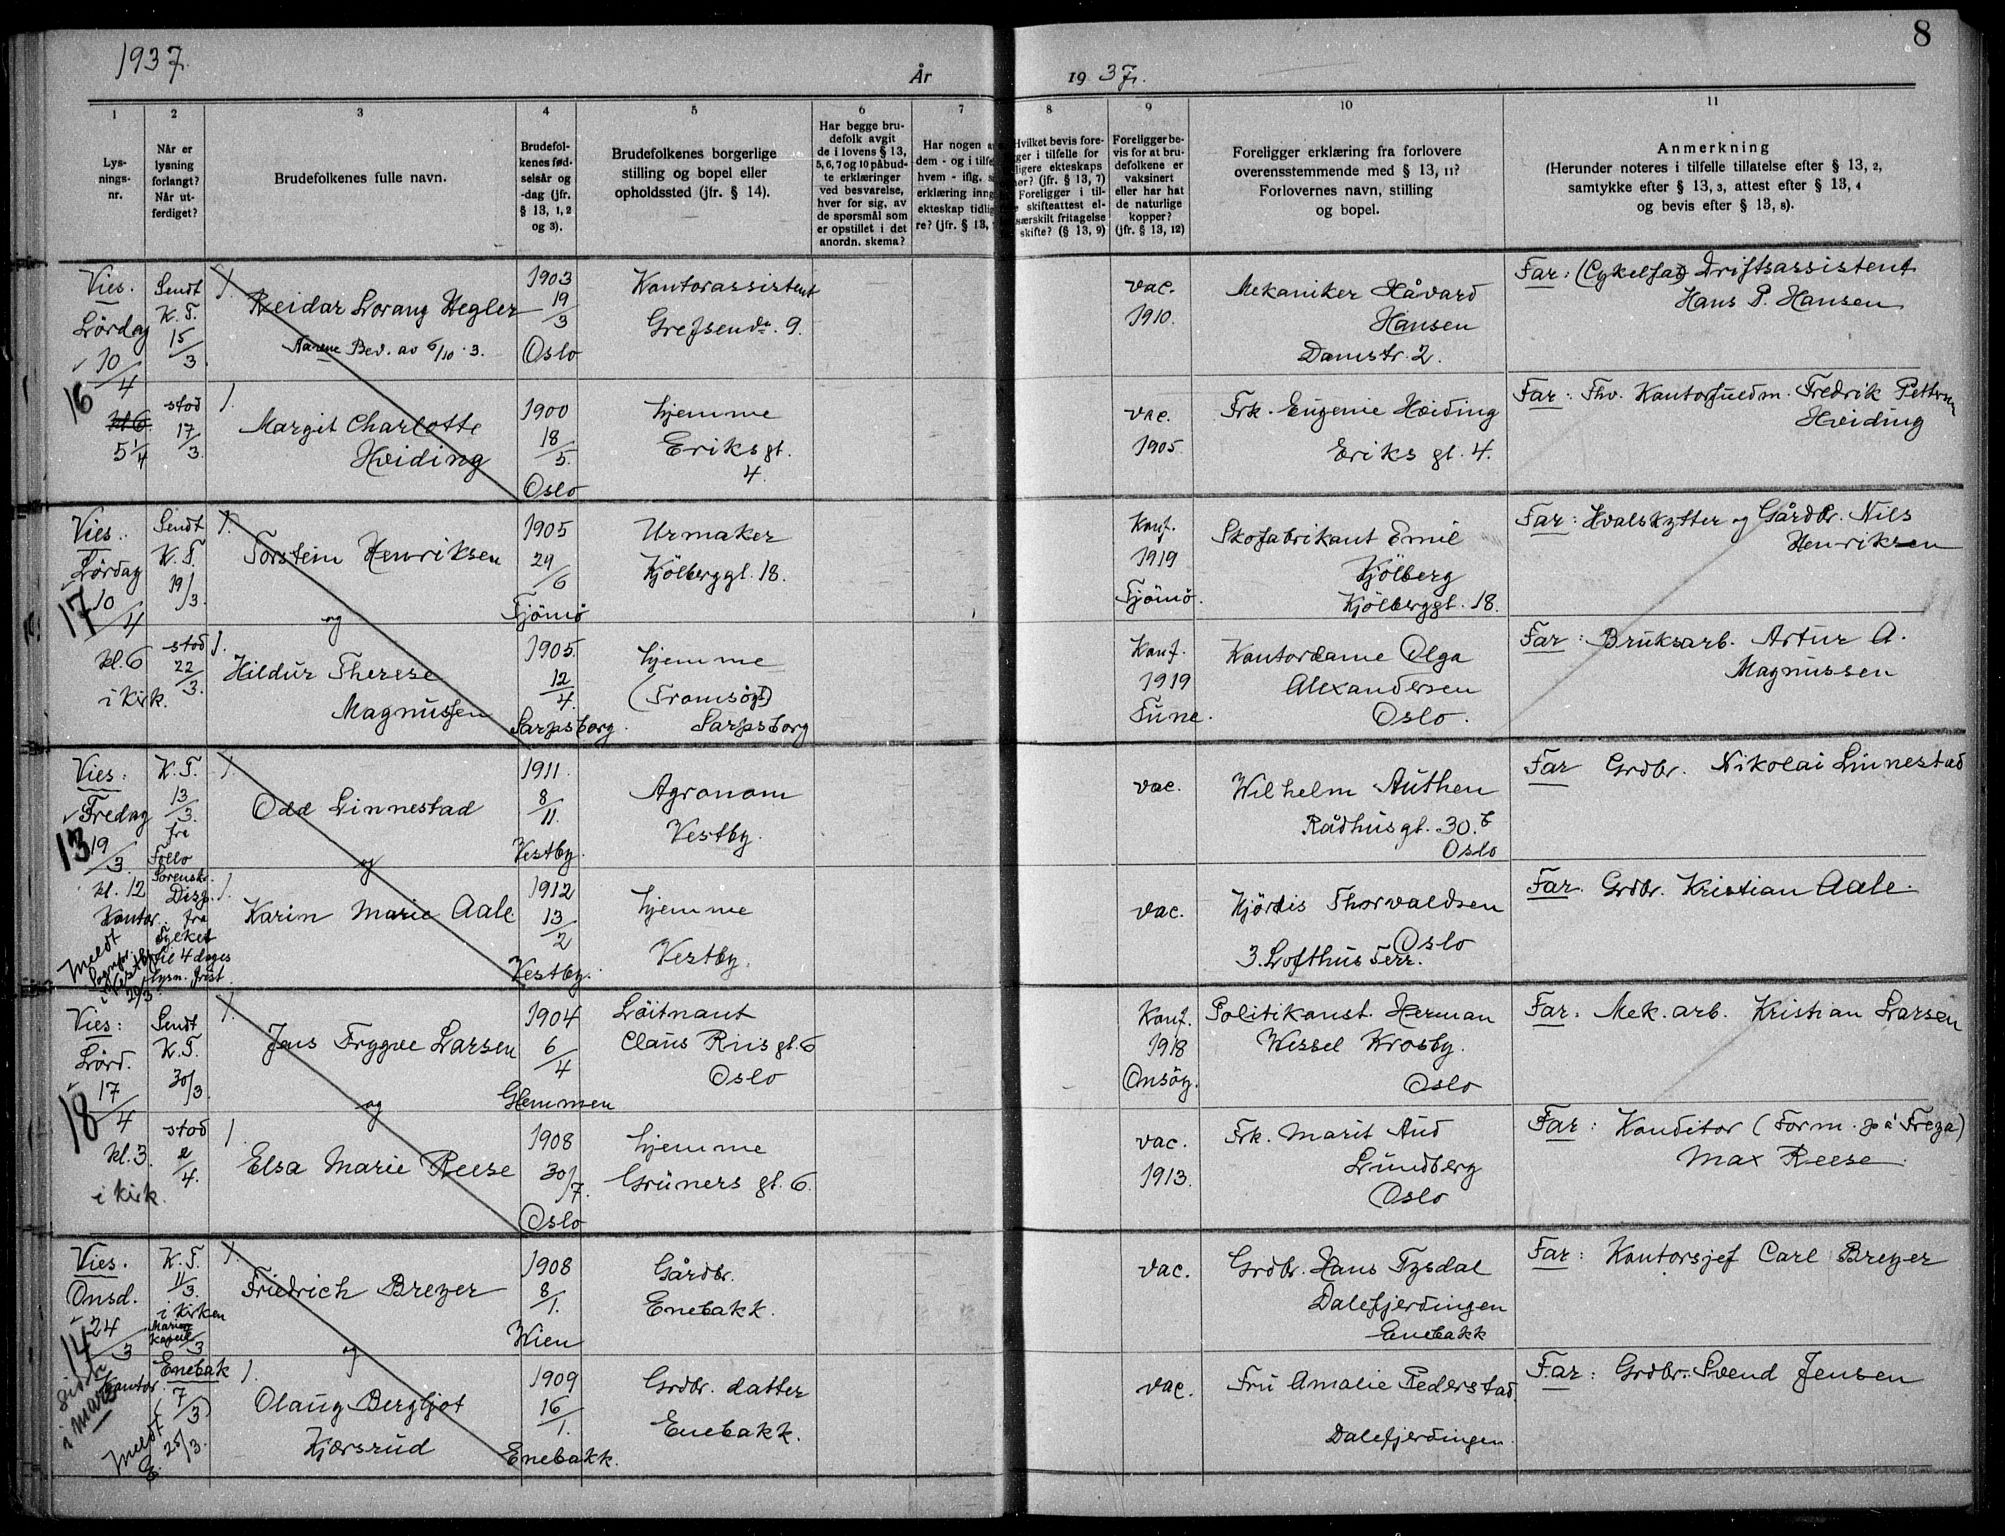 1937.
År
19 37.
8
1
Lys-
nings-
nr.
2
Når er
lysning
forlangt?
Når ut-
ferdiget?
3
Brudefolkenes fulle navn.
4
Brudefol-
kenes fød-
selsår og
-dag (jfr.
§ 13, 1, 2
og 3).
5
Brudefolkenes borgerlige
stilling og bopel eller
opholdssted (jfr. § 14).
6
Har begge bru-
defolk avgit
de i lovens § 13,
5, 6, 7 og 10 påbud-
te erklæringer
ved besvarelse,
hver for sig, av
de spørsmål som
er opstillet i det
anordn. skema?
7
Har nogen a
dem - og i tilfe
hvem - iflg. s
erklæring inng
ekteskap tidlig
re? (jfr. § 13,
8
Hvilket bevis fore-
ger i tilfelle for
ligere ekteskaps
hør? (jfr. § 13, 7)
Foreligger i til-
e skifteattest el-
særskilt fritagelse
skifte? (§ 13, 9)
9
Foreligger be-
vis for at bru-
defolkene er
vaksinert
eller har hat
de naturlige
kopper?
(jfr. § 13, 12)
10
Foreligger erklæring fra forlovere
overensstemmende med § 13, 11?
Forlovernes navn, stilling
og bopel.
11
Anmerkning
(Herunder noteres i tilfelle tillatelse efter § 13, 2,
samtykke efter § 13, 3, attest efter § 13, 4
og bevis efter § 13, 8).
Vies.
Lørdag
10/4
16
kl 6.
5 1/4
Sendt
K.T.
15/3
stod
17/3.
1.
Reidar Lorang Hegler
Navne Bev. av 6/10 . 3.
1903
19/3
Oslo
Kontorassistent
Grefsenv. 9.
vac.
1910.
Mekaniker Håvard
Hansen
Damstr. 2.
Far: (Cykelfa) Driftsassistent
Hans P. Hansen
1.
Margit Charlotte
Hviding
1900
18/5.
Oslo
hjemme
Eriks gt.
4.
vac.
1905
Frk. Eugenie Hviding
Eriks gt. 4.
Far: Fhv. Kontorfuldm. Fredrik Petter
Hviding
Vies.
Lørdag
10/4
17
kl. 6
i kirk.
Sendt
K.T.
19/3.
stod
22/3.
1.
Torstein Henriksen
og
1905
29/6
Tjömö
Urmaker
Kjölberggt. 18.
Konf.
1919
Tjömö.
Skofabrikant Emil
Kjölberg
Kjölberggt. 18.
Far: Hvalskytter og Gårdbr. Nils
Henriksen
1.
Hildur Therese
Magnussen
1905.
12/4.
Sarpsborg.
hjemme
(Tromsögt)
Sarpsborg
Konf.
1919
Tune.
Kontordame Olga
Alexandersen
Oslo.
Far: Bruksarb. Artur A.
Magnussen
Vies:
Fredag
19/3
13
kl. 12
Kontor.
meldt
Sognepr.
i Vestby
20/3.
K.T.
13/3.
fra
Follo
Sorenskr.
Disp.
fra
Fylket
til 4 dages
lysn. frist.
1.
Odd Linnestad
og
1911.
8/11.
Vestby.
Agronom
Vestby.
vac.
Wilhelm Authen
Rådhusgt. 30.b
Oslo
Far Grdbr. Nikolai Linnestad
1.
Karin Marie Aale
1912
13/2
Vestby.
hjemme
Vestby.
vac.
Hjördis Thorvaldsen
Oslo
3. Lofthus Terr.
Far. Grdbr. Kristian Aale.
Vies:
Lørd.
17/4
18
kl. 3.
i kirk.
Sendt
K.T.
30/3.
stod
2/4.
1.
Jens Trygve Larsen
og
1904
6/4
Glemmen
Löitnant
Claus Riis gt. 6
Oslo
Konf.
1918
Onsöy.
Politikonst. Herman
Wessel Krosby.
Oslo
Far. Mek. arb. Kristian Larsen
1
Elsa Marie Reese
1908
30/7.
Oslo
hjemme
Grüners gt. 6.
vac.
1913.
Frk. Marit Aud
Lundberg
Oslo
Far: Konditor (Form. på Freya)
Max Reese
Vies.
Onsd.
24/3
14
Kontor.
i mars
K.T.
11/3.
i Kirken
Maria
Kapell
/3
Enebak
(7/3)
meldt
E. 25/3.
1.
Friedrich Breyer
og
1908
8/1.
Wien
Gårdbr.
Enebakk.
vac.
Grdbr. Hans Tysdal
Dalefjerdingen
Enebakk
Far: Kontorsjef Carl Breyer
1.
Olaug Bergljot
Kjærsrud
1909
16/1.
Enebakk.
Grdbr. datter
Enebakk.
vac.
Fru Amalie Pederstad
Dalefjerdingen.
Far: Grdbr. Svend Jensen